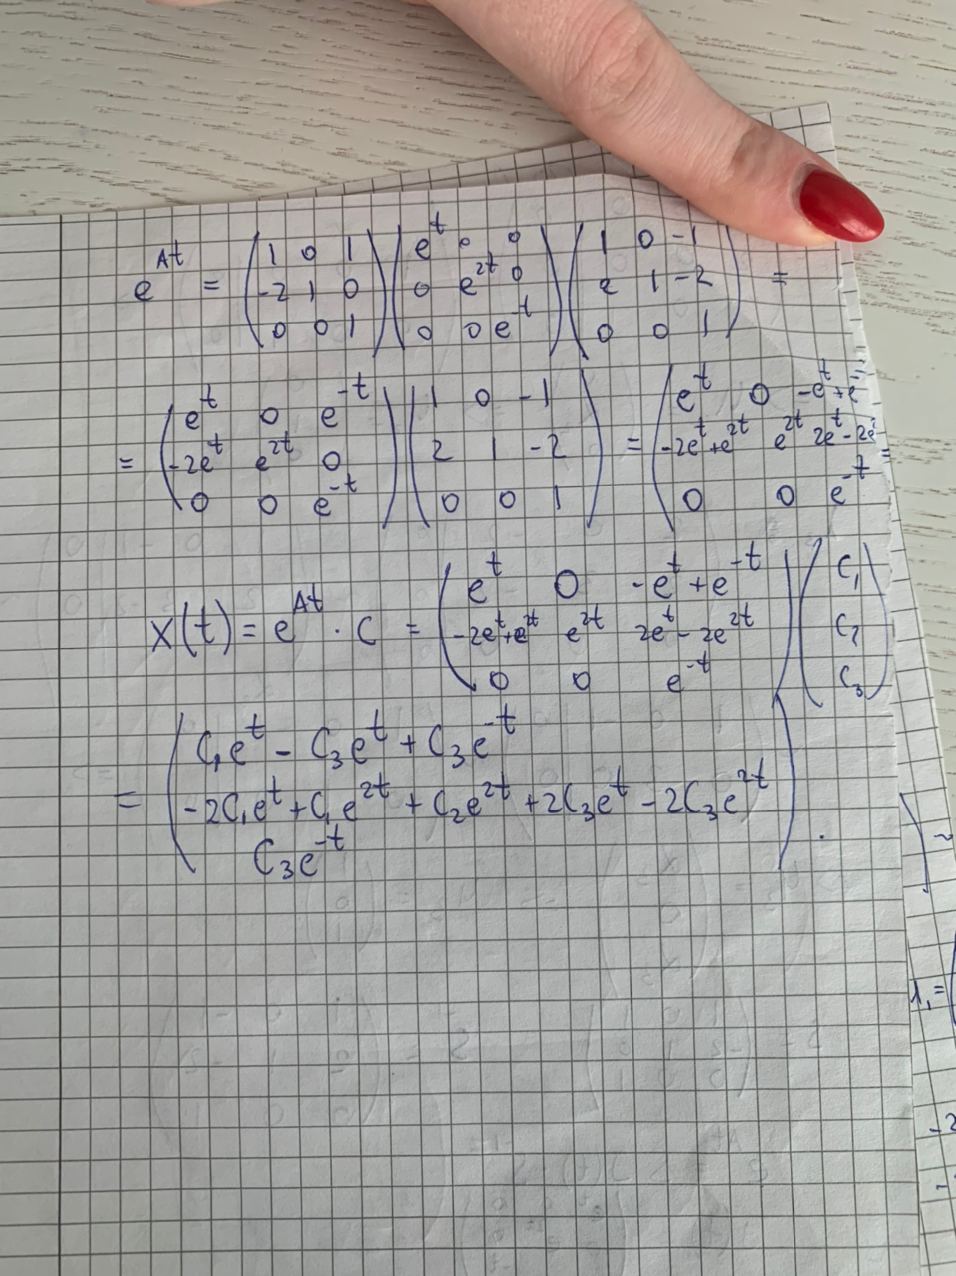 e^{At} = \begin{pmatrix} 1 & 0 & 1 \\ -2 & 1 & 0 \\ 0 & 0 & 1 \end{pmatrix} \begin{pmatrix} e^t & 0 & 0 \\ 0 & e^{2t} & 0 \\ 0 & 0 & e^{-t} \end{pmatrix} \begin{pmatrix} 1 & 0 & -1 \\ 2 & 1 & -2 \\ 0 & 0 & 1 \end{pmatrix} =
= \begin{pmatrix} e^t & 0 & e^{-t} \\ -2e^t & e^{2t} & 0 \\ 0 & 0 & e^{-t} \end{pmatrix} \begin{pmatrix} 1 & 0 & -1 \\ 2 & 1 & -2 \\ 0 & 0 & 1 \end{pmatrix} = \begin{pmatrix} e^t & 0 & -e^t + e \\ -2e^t + e^{2t} & e^{2t} & 2e^t - 2e^2 \\ 0 & 0 & e^{-t} \end{pmatrix} =
X(t) = e^{At} \cdot C = \begin{pmatrix} e^t & 0 & -e^t + e^{-t} \\ -2e^t + e^{2t} & e^{2t} & 2e^t - 2e^{2t} \\ 0 & 0 & e^{-t} \end{pmatrix} \begin{pmatrix} C_1 \\ C_2 \\ C_3 \end{pmatrix}
= \begin{pmatrix} C_1e^t - C_3e^t + C_3e^{-t} \\ -2C_1e^t + C_1e^{2t} + C_2e^{2t} + 2C_3e^t - 2C_3e^{2t} \\ C_3e^{-t} \end{pmatrix}.
λ_1 =